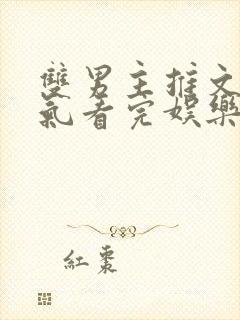 雙男主推文
氣看完娛樂
紅棗